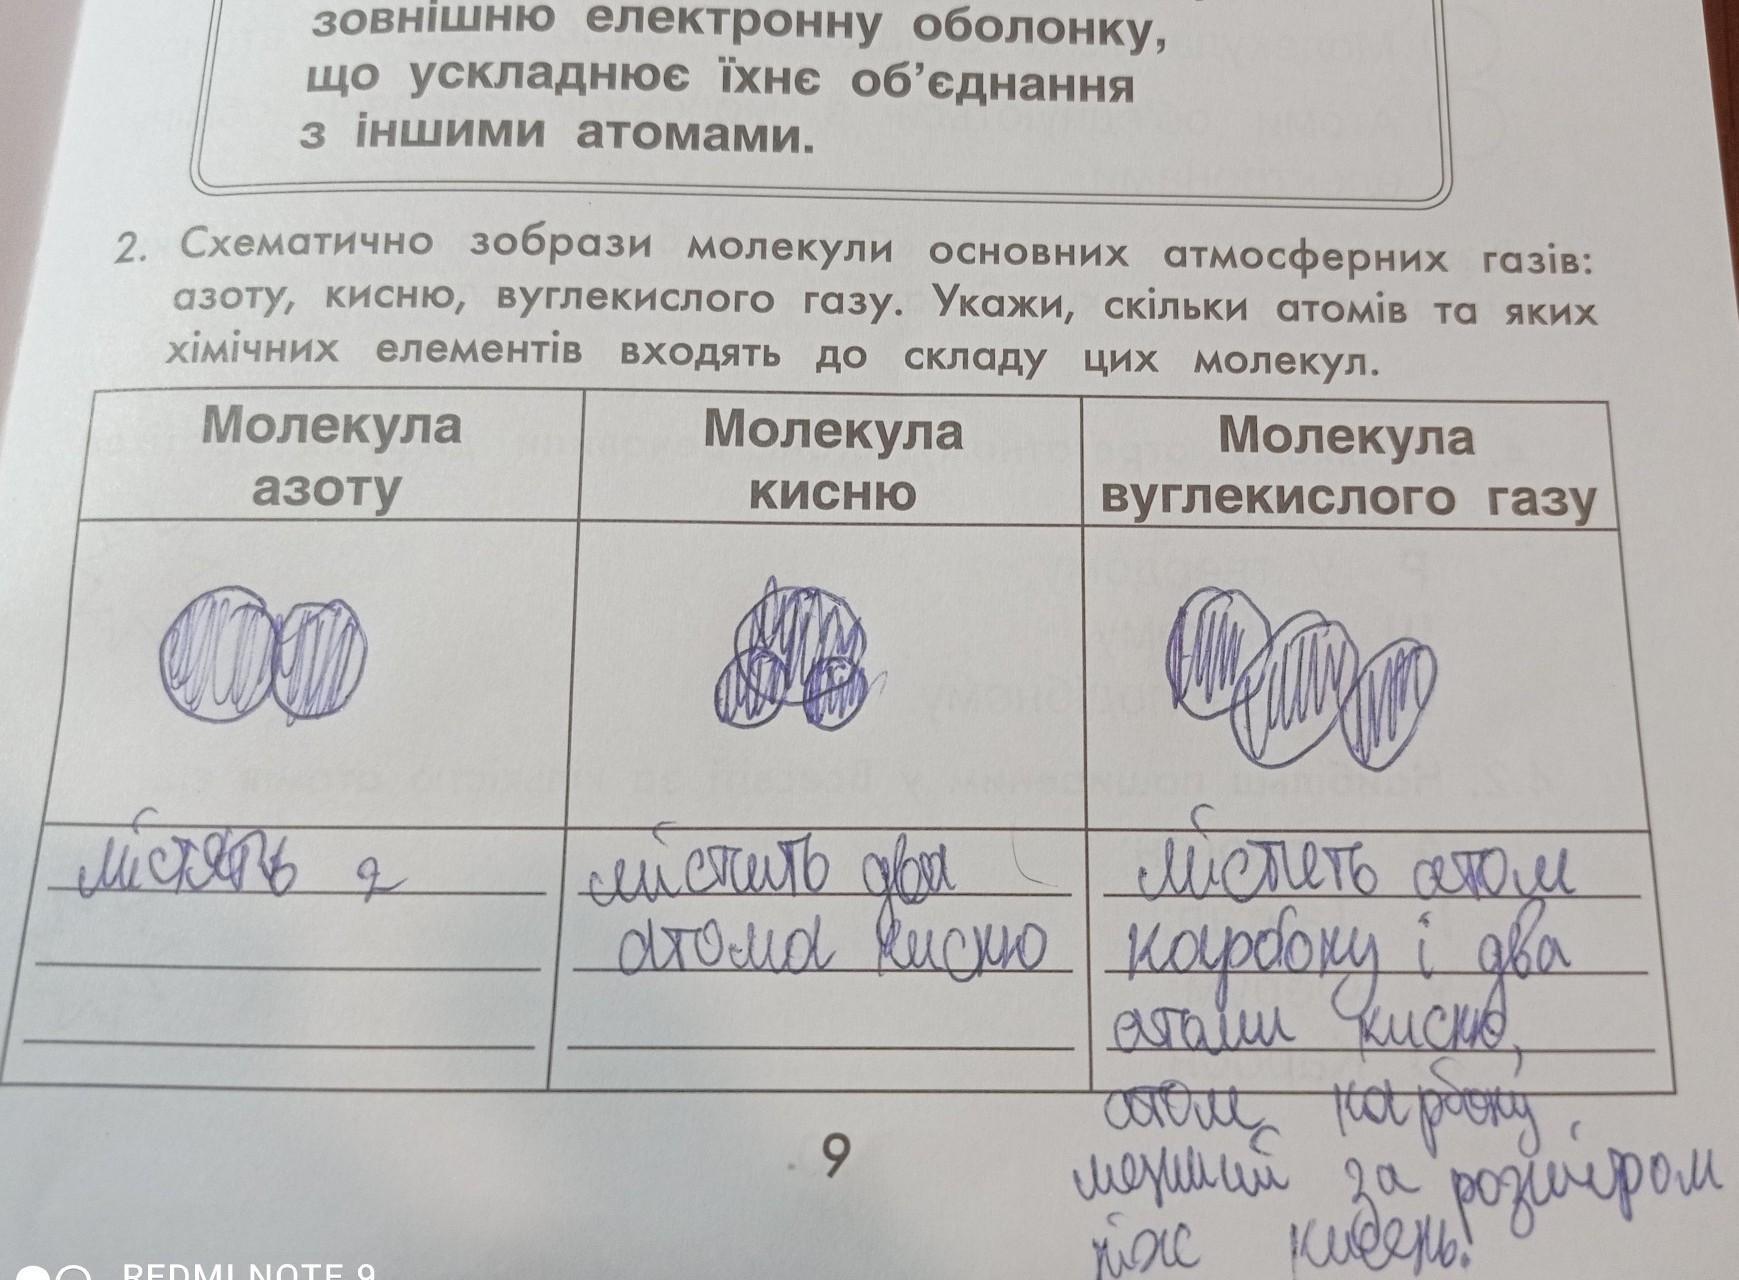 зовнішню електронну оболонку,
що ускладнює їхнє об’єднання
з іншими атомами.
2. Схематично зобрази молекули основних атмосферних газів:
азоту, кисню, вуглекислого газу. Укажи, скільки атомів та яких
хімічних елементів входять до складу цих молекул.
Молекула
азоту
Молекула
кисню
Молекула
вуглекислого газу
містять 2
містить два
атома кисню
містеть атом
карбону і два
атоми кисню,
атом карбону
менший за розміром
ніж кисень.
9
REDMI NOTE 9